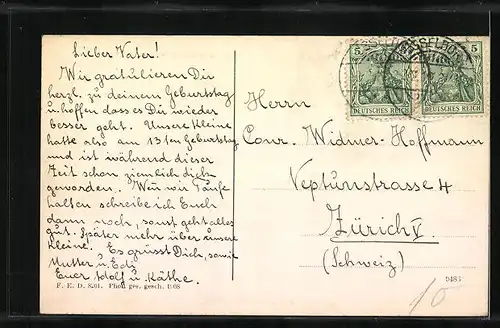 Lieber Vater!
Wir gratulieren Dir
herzl. zu deinem Geburtstag
u hoffen dass es Dir wieder
besser geht. Unsere Kleine
hatte also am 13ten Geburtstag
und ist während dieser
Zeit schon ziemlich dick
geworden. Wenn wir Taufe
halten schreibe ich Euch
dann noch, sonst geht alles
gut. Später mehr über unsere
Kleine. Es grüsst Dich, sowie
Mutter u Edi
Euer Adolf u. Käthe.
F. E. D. S.01. Phot. ges. gesch. 1908
5 5
DEUTSCHES REICH DEUTSCHES REICH
Herrn
Conr. Widmer-Hoffmann
Neptunstrasse 4
Zürich V.
(Schweiz)
9485
10